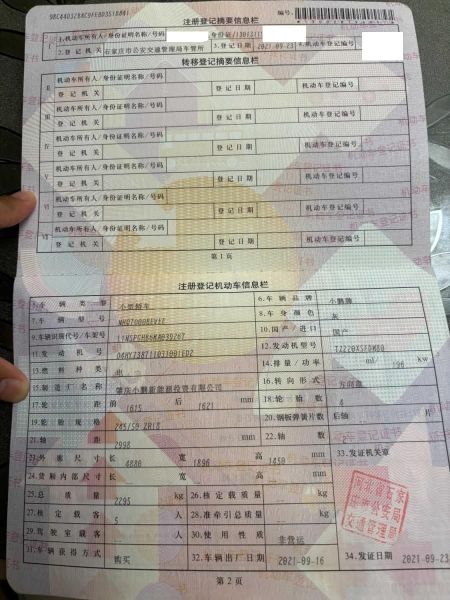 注册登记摘要信息栏
编号:
1.机动车所有人/身份证明名称/号码
2.登记机关 石家庄市公安交通管理局车管所 3.登记日期 2021-09-23 4.机动车登记编号
转移登记摘要信息栏
Ⅱ 机动车所有人/身份证明名称/号码
登记机关 登记日期 机动车登记编号
Ⅲ 机动车所有人/身份证明名称/号码
登记机关 登记日期 机动车登记编号
Ⅳ 机动车所有人/身份证明名称/号码
登记机关 登记日期 机动车登记编号
Ⅴ 机动车所有人/身份证明名称/号码
登记机关 登记日期 机动车登记编号
Ⅵ 机动车所有人/身份证明名称/号码
登记机关 登记日期 机动车登记编号
Ⅶ 机动车所有人/身份证明名称/号码
登记机关 登记日期 机动车登记编号
第1页
注册登记机动车信息栏
5.车辆类型 小型轿车 6.车辆品牌 小鹏牌
7.车辆型号 8.车身颜色 灰
9.车辆识别代号/车架号 10.国产/进口 国产
11.发动机号 12.发动机型号
13.燃料种类 电 14.排量/功率 ml/ 196 kw
15.制造厂名称 肇庆小鹏新能源投资有限公司 16.转向形式 方向盘
17.轮距 前 1615 后 1621 mm 18.轮胎数 4
19.轮胎规格 245/50 ZR18 20.钢板弹簧片数 后轴 片
21.轴距 2998 mm 22.轴数
23.外廓尺寸 长 4880 宽 1896 高 1450 mm 33.发证机关章
24.货厢内部尺寸 长 宽 高 mm
25.总质量 2295 kg 26.核定载质量 kg
27.核定载客 5 人 28.准牵引总质量 kg
29.驾驶室载客 人 30.使用性质 非营运
河北省石家庄市公安局交通管理局
31.车辆获得方式 购买 32.车辆出厂日期 2021-09-16 34.发证日期 2021-09-23
第2页